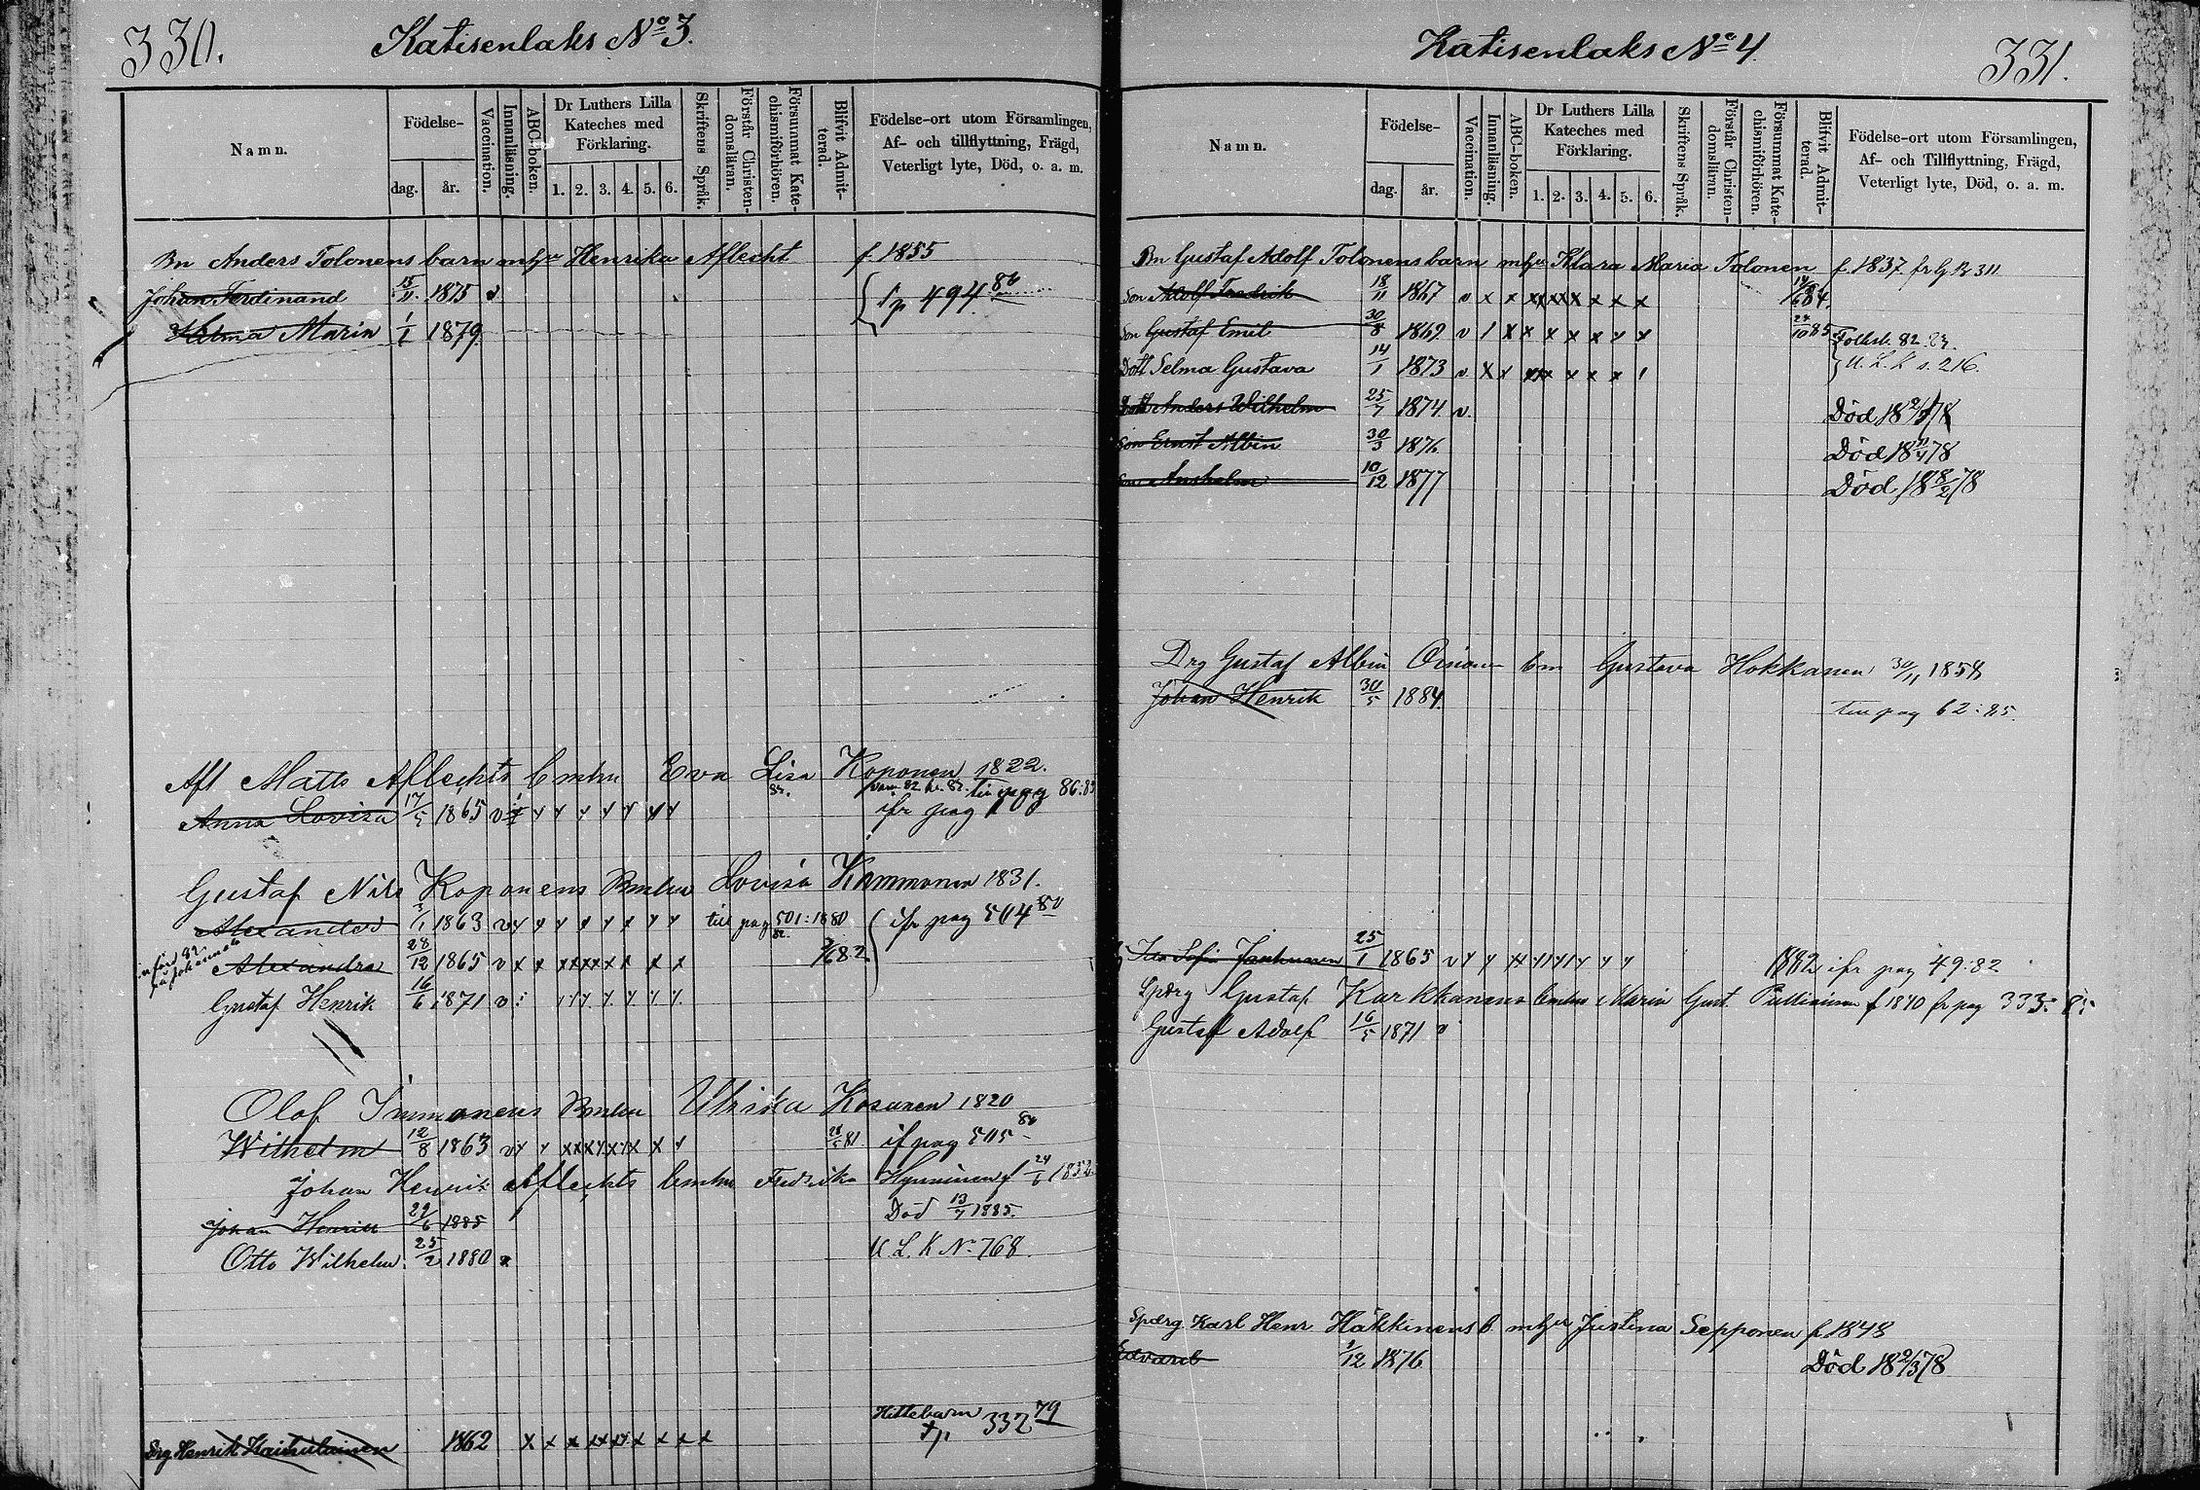 330.
Katisenlaks No 3.
Namn.
Födelse-
dag.
år.
Vaccination.
Innanläsning.
ABC-boken.
Dr Luthers Lilla
Kateches med
Förklaring.
1. 2. 3. 4. 5. 6.
Skriftens Språk.
Förstår Christen-
domsläran.
Försummat Kate-
chismiförhören.
Blifvit Admit-
terad.
Födelse-ort utom Församlingen,
Af- och tillflyttning, Frägd,
Veterligt lyte, Död, o. a. m.
Bn Anders Tolonens barn m hu Henrika Aflecht f. 1855
Johan Ferdinand 15/11 1875 v
Tp 494 86
Selma Maria 1/1 1879
Aft Matts Aflechts b m hu Eva Lisa Koponen 1822.
till pag 86:83
Anna Lovisa 17/5 1865 v x y y y y y y y ifr pag
Gustaf Nils Koponens Bn m hu Lovisa Kammonen 1831.
Alexander 3/1 1863 v y y y y y y y y till pag 501:1880 ifr pag 504 80
Alexandra 28/12 1865 v x x x x x x x x x x 82
Gustaf Henrik 16/6 1871 v
Olof Immonens Bn m hu Ulrika Kosunen 1820
Wilhelm 12/8 1863 v y y x x x y x y x x y 81. if pag 505 80
Johan Henrik Aflechts b m hu Fredrika Hynninen f 24/6 1852
Johan Henrik 29/6 1885 Död 13/7 1885.
Otto Wilhelm 25/2 1880 U. L. K No 768.
Hittebarn
Drg Henrik Kaikulainen 1862 x x x x x x x x x x Tp 332 79
Katisenlaks No 4.
331.
Namn.
Födelse-
dag.
år.
Vaccination.
Innanläsning.
ABC-boken.
Dr Luthers Lilla
Kateches med
Förklaring.
1. 2. 3. 4. 5. 6.
Skriftens Språk.
Förstår Christen-
domsläran.
Försummat Kate-
chismiförhören.
Blifvit Admit-
terad.
Födelse-ort utom Församlingen,
Af- och Tillflyttning, Frägd,
Veterligt lyte, Död, o. a. m.
Bn Gustaf Adolf Tolonens barn m hu Klara Maria Tolonen f. 1837
Son Adolf Fredrik 18/11 1867 v x x x x x x x x x 84.
Son Gustaf Emil 30/8 1869 v 1 x x x x x x x 85
Folksk. 82.
Dott Selma Gustava 14/1 1873 v x x x x x x x x 1 U. L. K s. 216.
Anders Wilhelm 25/7 1874 v. Död 18 78
Son Ernst Albin 30/3 1876 Död 18 78
Son Anshelm 10/12 1877 Död 18 8/2 78
Drg Gustaf Albin b m Gustava Hokkanen 30/11 1858
Johan Henrik 30/5 1884. till pag 62:85.
Sofia Janhunen 25/1 1865 v y y 1882 ifr pag 49:82
Spörg Gustaf Karkkanens b m hu Maria Gust. f 1840 fr pag 333: 85
Gustaf Adolf 16/5 1871 v
Spörg. Karl Henr Häkkinens b. m hu Justina Sepponen f. 1848
Edvard 1/12 1876 Död 18 2/3 78